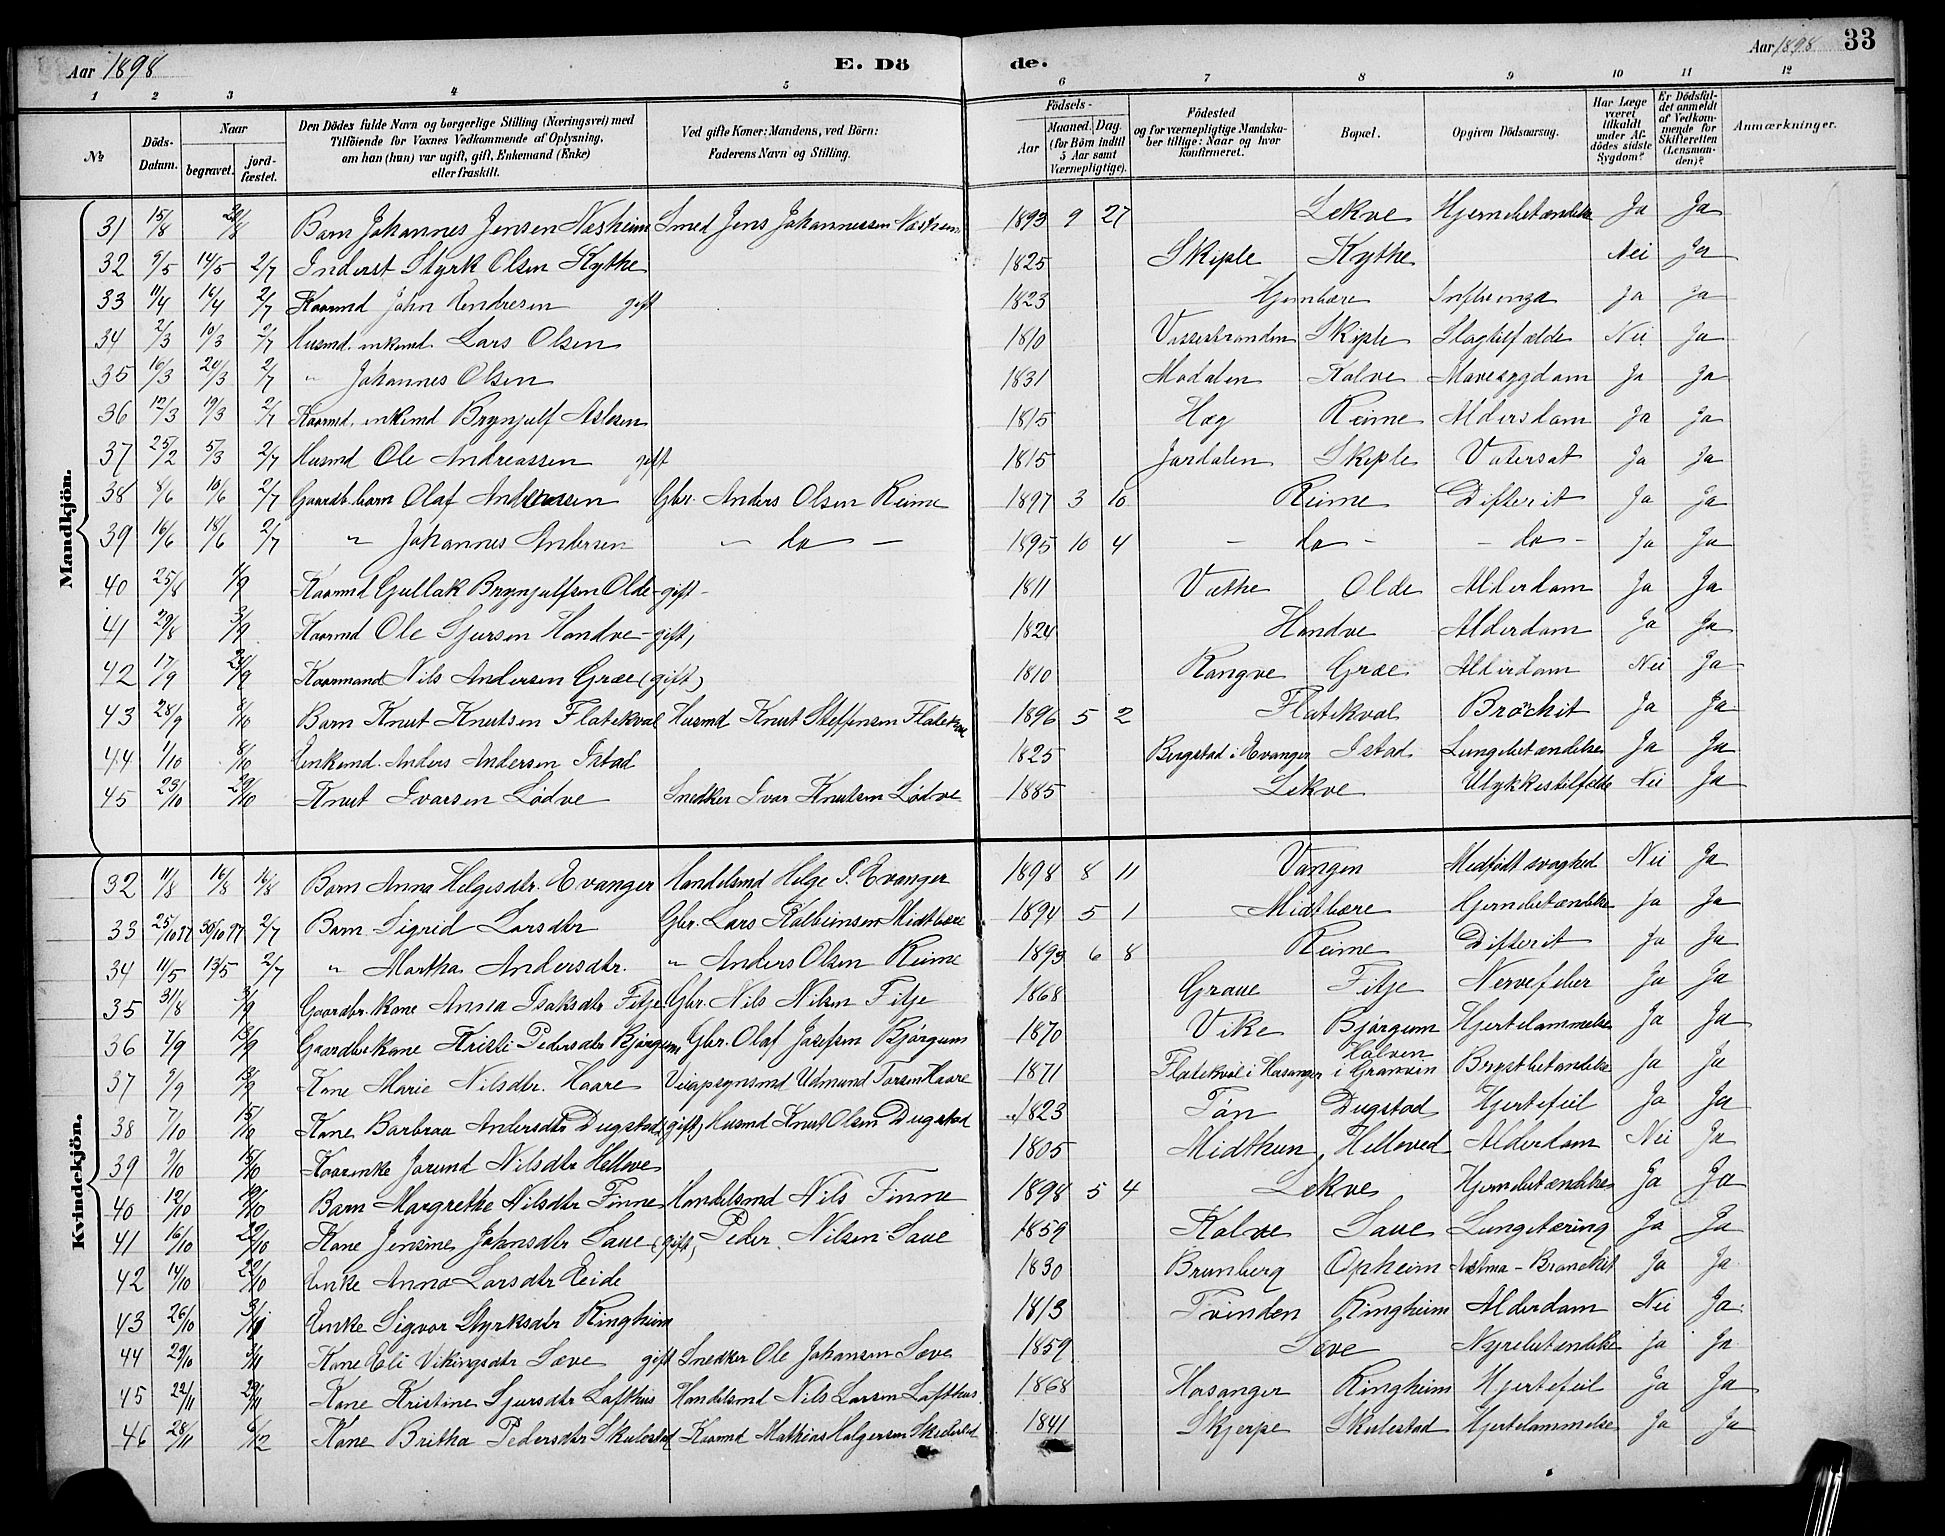 Aar 1898 E. Dö de. Aar 1898 33
1 2 3 4 5 6 7 8 9 10 11 12
№ Döds-Datum. Naar begravet. jord-fæstet. Den Dödes fulde Navn og borgerlige Stilling (Næringsvei) med Tilföiende for Voxnes Vedkommende af Oplysning, om han (hun) var ugift, gift, Enkemand (Enke) eller fraskilt. Ved gifte Koner: Mandens, ved Börn: Faderens Navn og Stilling. Födsels- Aar Maaned. Dag. (for Börn indtil 5 Aar samt Værnepligtige). Födested og for værnepligtige Mandskaber tillige: Naar og hvor konfirmeret. Bopæl. Opgiven Dödsaarsag. Har Læge været tilkaldt under Afdödes sidste Sygdom? Er Dödsfaldet anmeldt af Vedkommende for Skifteretten (Lensmanden)? Anmærkninger.
Mandkjön.
31 15/8 20/8 Barn Johannes Jensen Næsheim Smed Jens Johannessen Næsheim 1893 9 27 Lekve Hjernebetændelse Ja Ja
32 9/5 14/5 2/7 Inderst Styrk Olsen Kythe 1825 Skiple Kythe Nei Ja
33 11/4 16/4 2/7 Kaarmd John Endresen gift 1823 Hjembære Influenza Ja Ja
34 2/3 10/3 2/7 Husmd. enkemd. Lars Olsen 1810 Vossestranden Skiple Slagtilfælde Nei Ja
35 16/3 24/3 2/7 " Johannes Olsen 1831 Modalen Kolve Mavesygdom Ja Ja
36 12/3 19/3 2/7 Kaarmd. enkemd Brynjulf Aslesen 1815 Hæg Reime Aldersdom Ja Ja
37 25/2 5/3 2/7 Husmd Ole Andreassen gift 1815 Jordalen Skiple Vatersot Ja Ja
38 8/6 10/6 2/7 Gaardb. barn Olaf Andersen Gbr. Anders Olsen Reime 1897 3 10 Reime Difterit Ja Ja
39 16/6 18/6 2/7 " Johannes Andersen - do - 1895 10 4 - do - - do - Ja Ja
40 25/8 1/9 Kaarmd Gullak Brynjulfsen Olde - gift - 1811 Væthe Olde Alderdom Ja Ja
41 29/8 3/9 Kaarmd Ole Sjursen Hondve - gift, 1824 Hondve Alderdom Ja Ja
42 17/9 24/9 Kaarmand Nils Andersen Græe (gift) 1810 Rongve Græe Alderdom Nei Ja
43 28/9 /10 Barn Knut Knutsen Flatekval Husmd Knut Steffensen Flatekval 1896 5 2 Flatekval Ja Ja
44 1/10 8/10 Enkemd. Anders Andersen Istad 1825 Bergstad i Evanger Istad Lungebetændelse Ja Ja
45 23/10 29/10 Knut Ivarsen Lødve Snedker Ivar Knutsen Lødve 1885 Lekve Ulykkestilfælde Nei Ja
Kvindekjön.
32 11/8 16/8 16/8 Barn Anna Helgesdtr. Evanger Handelsmd Helge S. Evanger 1898 8 11 Vangen Medfødt svaghed Nei Ja
33 25/10 97 30/10 97 2/7 Barn Sigrid Larsdtr Gbr. Lars Kolbeinsen Midtbære 1894 5 1 Midtbære Hjernebetændelse Ja Ja
34 11/5 13/5 2/7 " Martha Andersdtr. " Anders Olsen Reime 1893 6 8 Reime Difterit Ja Ja
35 31/8 3/9 Gaardbr. kone Anna Isaksdtr Fitje Gbr. Nils Nilsen Fitje 1868 Graue Fitje Nervefeber Ja Ja
36 7/9 13/9 Gaardbr kone Kristi Pedersdtr Bjørgum Gbr. Olaf Josefsen Bjørgum 1870 Vike Bjørgum Hjertelammelse Ja Ja
37 9/9 13/9 Kone Marie Nilsdtr. Haare Veiopsynsmd Udmund Torsen Haare 1871 Flatekval i Hosanger Holven i Granvin Brystbetændelse Ja Ja
38 7/10 15/10 Kone Barbraa Andersdtr Dugstad (gift) Husmd Knut Olsen Dugstad 1823 Tøn Dugstad Hjertefeil Ja Ja
39 9/10 15/10 Kaarenke Jorund Nilsdtr Helleve 1805 Midthun Helleved Alderdom Nei Ja
40 12/10 19/10 Barn Margrethe Nilsdtr Finne Handelsmd Nils Finne 1898 5 4 Lekve Hjernebetændelse Ja Ja
41 16/10 22/10 Kone Jensine Johnsdtr Saue (gift) Peder Nilsen Saue 1859 Kolve Saue Lungetæring Ja Ja
42 14/10 22/10 Enke Anna Larsdtr Eide 1830 Brunberg Opheim Astma - Bronchit Ja Ja
43 26/10 3/11 Enke Sigvor Styrksdtr Ringheim 1813 Tvinden Ringheim Alderdom Nei Ja
44 29/10 3/11 Kone Eli Vikingsdtr Sæve gift Snedker Ole Johansen Sæve 1859 Sæve Nyrebetændelse Ja Ja
45 22/11 29/11 Kone Kristine Sjursdtr Lofthus Handelsmd Nils Larsen Lofthus 1868 Hosanger Ringheim Hjertefeil Ja Ja
46 28/11 6/12 Kone Britha Pedersdtr Skulestad Kaarmd Mathias Holgersen Skulestad 1841 Skjerpe Skulestad Hjertelammelse Ja Ja